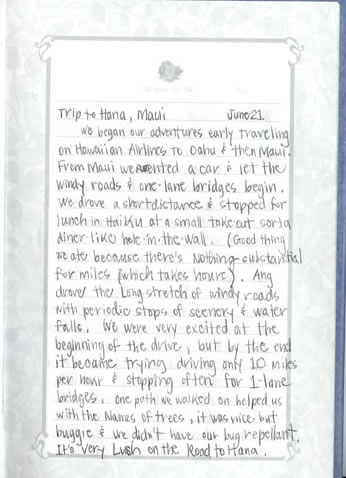 Trip to Hana, Maui June 21
We began our adventures early traveling
on Hawaiian Airlines to Oahu & then Maui.
From Maui we rented a car & let the
windy roads & one-lane bridges begin.
We drove a short distance & stopped for
lunch in Haiku at a small take-out sorta
diner-like hole-in-the-wall. (Good thing
we ate because there's Nothing substantial
for miles (which takes hours)). Ang
drove the Long stretch of windy roads
with periodic stops of scenery & water
falls. We were very excited at the
beginning of the drive, but by the end
it became trying driving only 10 miles
per hour & stopping often for 1-lane
bridges. One path we walked on helped us
with the Names of trees, it was nice but
buggie & we didn't have our bug repellant.
It's very Lush on the Road to Hana.